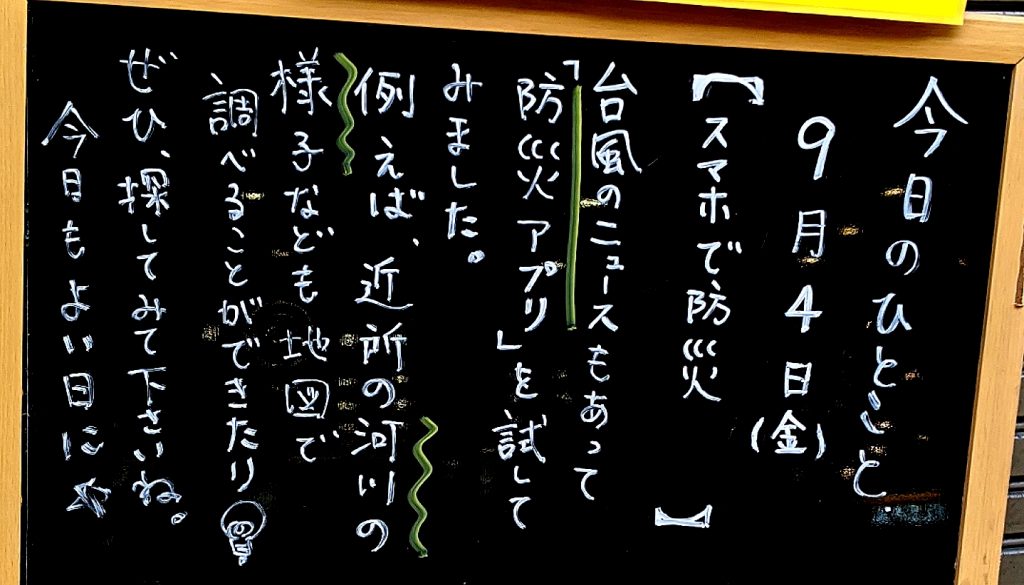 今日のひとこと
9月4日(金)
【スマホで防災】
台風のニュースもあって
「防災アプリ」を試して
みました。
例えば、近所の河川の
様子なども地図で
調べることができたり
ぜひ、探してみて下さいね。
今日もよい日に☆